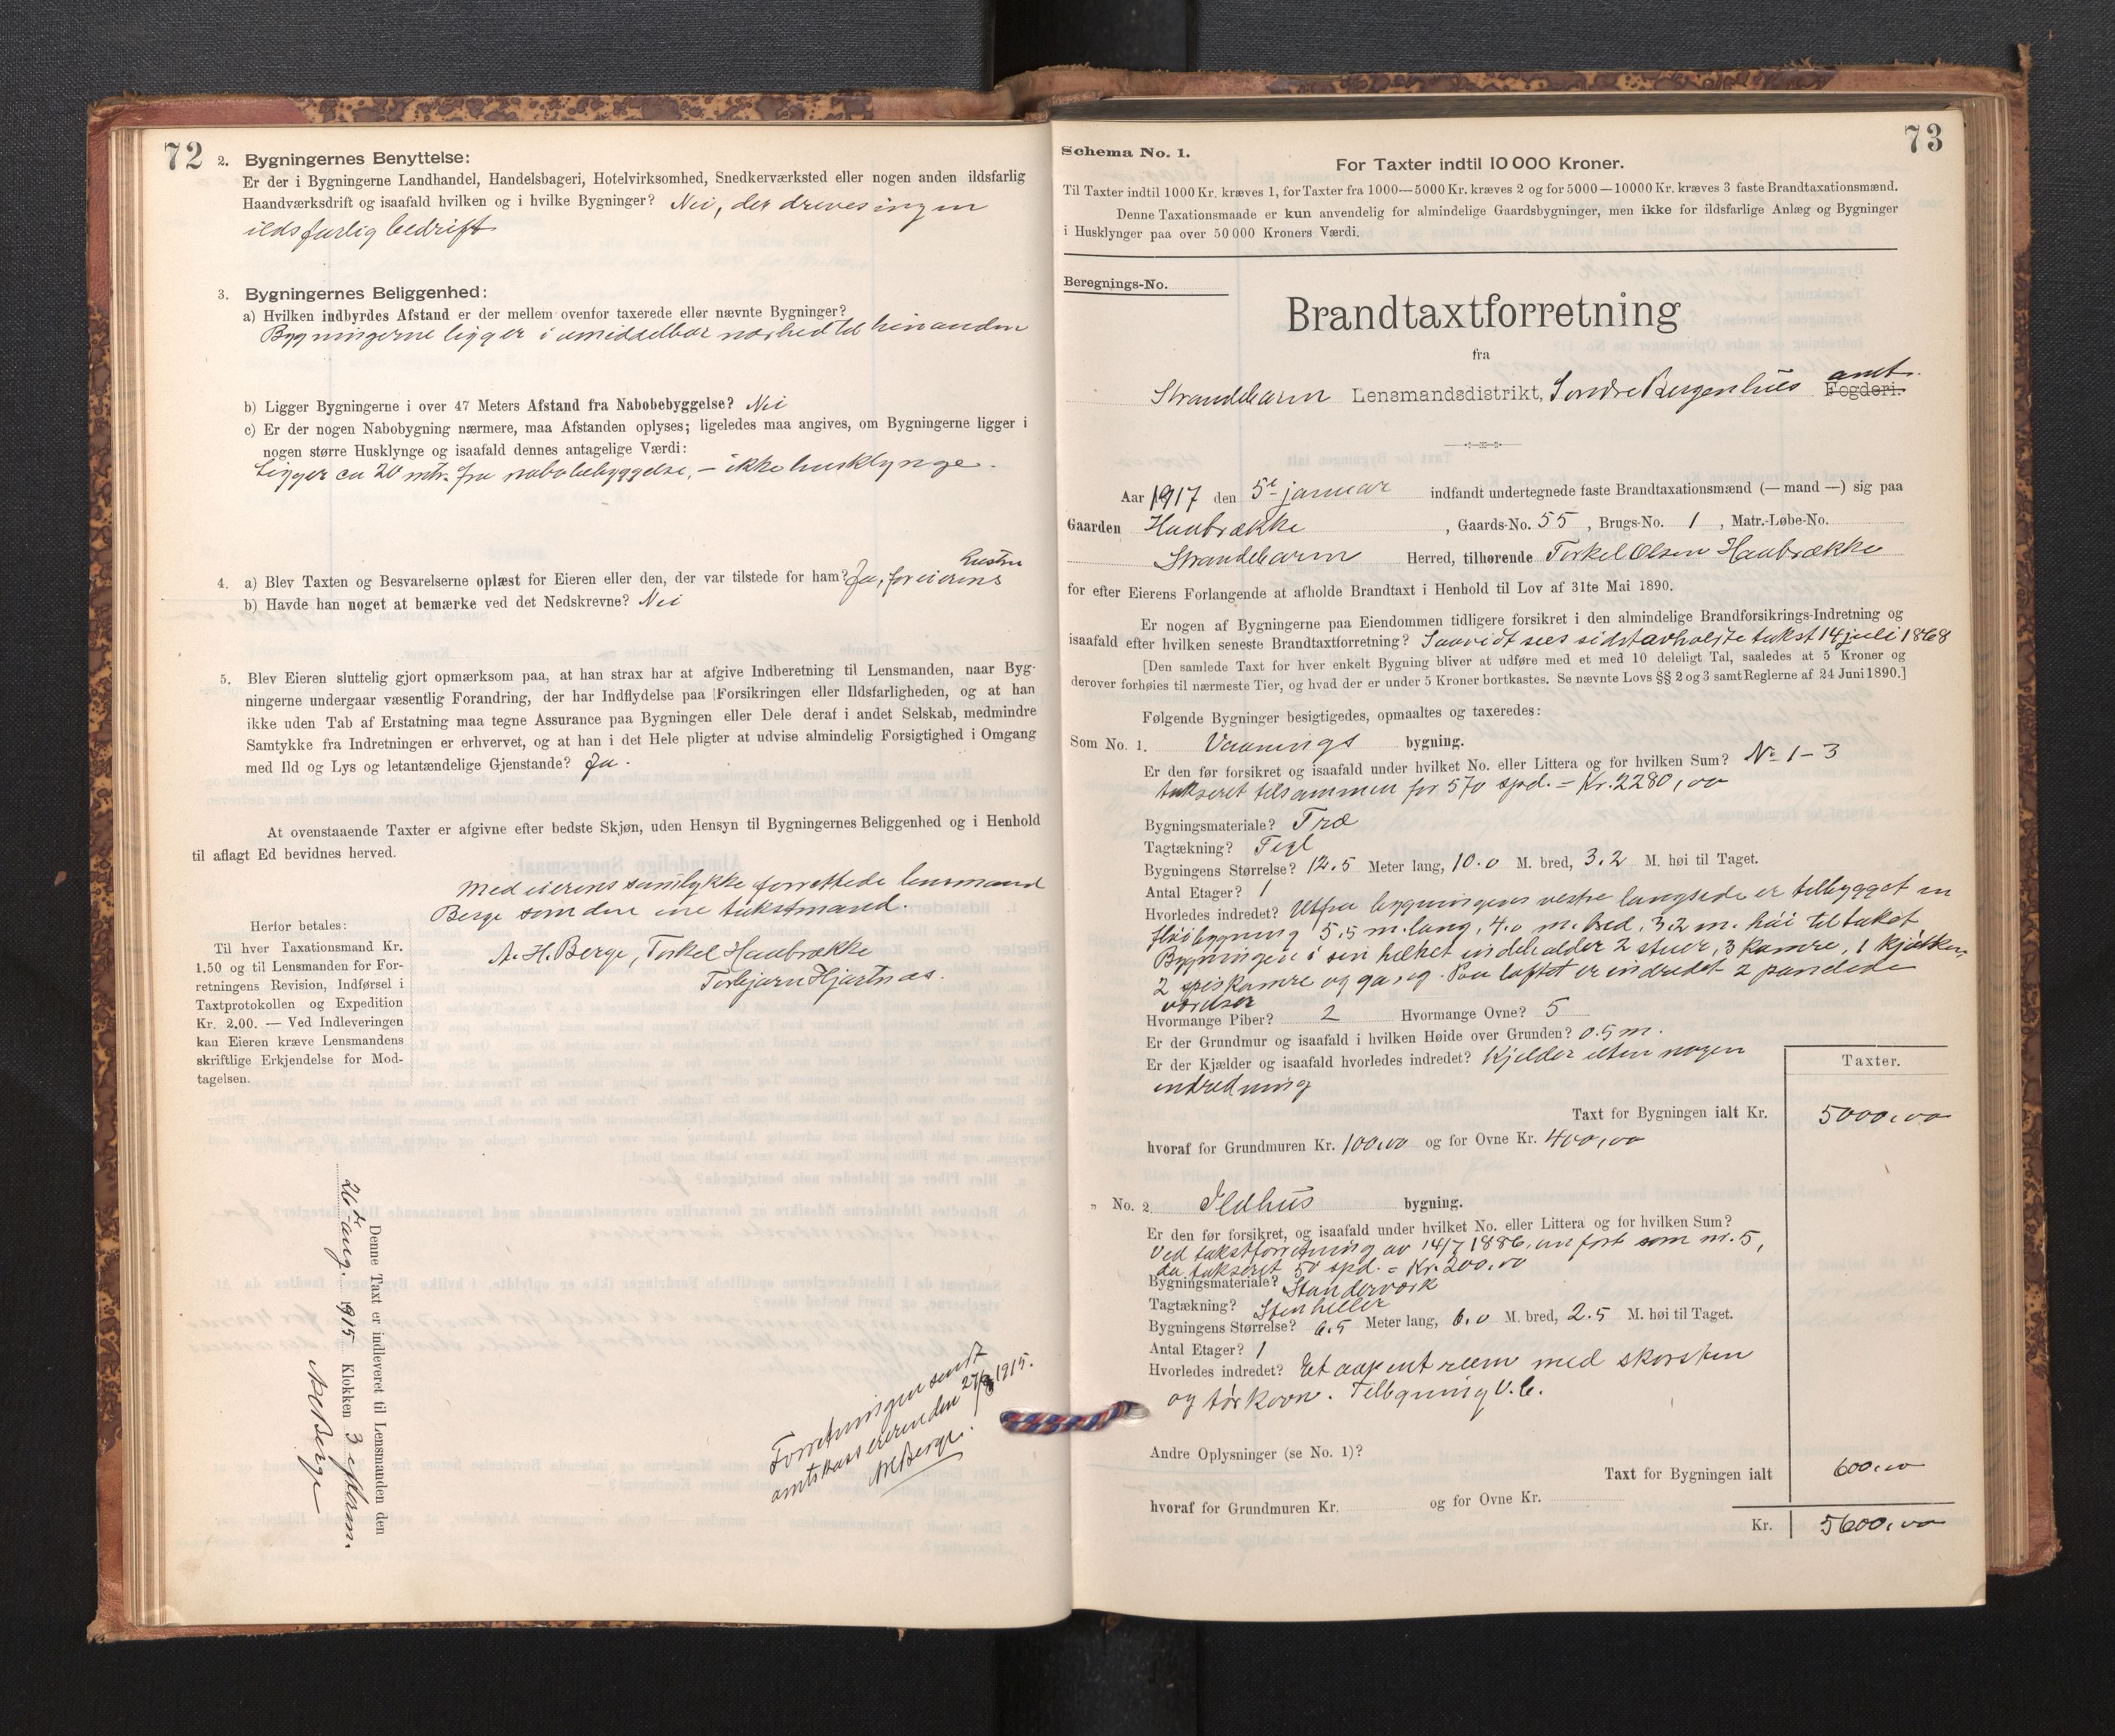 72
2. Bygningernes Benyttelse:
Er der i Bygningerne Landhandel, Handelsbageri, Hotelvirksomhed, Snedkerværksted eller nogen anden ildsfarlig
Haandværksdrift og isaafald hvilken og i hvilke Bygninger? Nei, der drives ingen
ildsfarlig bedrift
3. Bygningernes Beliggenhed:
a) Hvilken indbyrdes Afstand er der mellem ovenfor taxerede eller nævnte Bygninger?
Bygningerne ligger i umiddelbar nærhed til hinanden
b) Ligger Bygningerne i over 47 Meters Afstand fra Nabobebyggelse? Nei
c) Er der nogen Nabobygning nærmere, maa Afstanden oplyses; ligeledes maa angives, om Bygningerne ligger i
nogen større Husklynge og isaafald dennes antagelige Værdi:
Ligger ca 20 mtr. fra nabobebyggelse, – ikke husklynge.
hustru
4. a) Blev Taxten og Besvarelserne oplæst for Eieren eller den, der var tilstede for ham? Ja, for eierens
b) Havde han noget at bemærke ved det Nedskrevne? Nei
5. Blev Eieren sluttelig gjort opmærksom paa, at han strax har at afgive Indberetning til Lensmanden, naar Byg-
ningerne undergaar væsentlig Forandring, der har Indflydelse paa Forsikringen eller Ildsfarligheden, og at han
ikke uden Tab af Erstatning maa tegne Assurance paa Bygningen eller Dele deraf i andet Selskab, medmindre
Samtykke fra Indretningen er erhvervet, og at han i det Hele pligter at udvise almindelig Forsigtighed i Omgang
med Ild og Lys og letantændelige Gjenstande? Ja.
At ovenstaaende Taxter er afgivne efter bedste Skjøn, uden Hensyn til Bygningernes Beliggenhed og i Henhold
til aflagt Ed bevidnes herved.
Med eierens samtykke forrettede lensmand
Berge som den ene takstmand.
A. H. Berge, Torkel Haabrække
Torbjørn Hjartnæs.
Herfor betales:
Til hver Taxationsmand Kr.
1.50 og til Lensmanden for For-
retningens Revision, Indførsel i
Taxtprotokollen og Expedition
Kr. 2.00. — Ved Indleveringen
kan Eieren kræve Lensmandens
skriftlige Erkjendelse for Mod-
tagelsen.
Denne Taxt er indleveret til Lensmanden den
26de aug. 1915 Klokken 3 efterm.
A H Berge
Forretningen sendt
amtskassereren den 27/8 1915.
A H Berge.
73
Schema No. 1.
For Taxter indtil 10 000 Kroner.
Til Taxter indtil 1000 Kr. kræves 1, for Taxter fra 1000—5000 Kr. kræves 2 og for 5000—10000 Kr. kræves 3 faste Brandtaxationsmænd.
Denne Taxationsmaade er kun anvendelig for almindelige Gaardsbygninger, men ikke for ildsfarlige Anlæg og Bygninger
i Husklynger paa over 50 000 Kroners Værdi.
Beregnings-No.
Brandtaxtforretning
fra
amt.
Strandebarm Lensmandsdistrikt, Søndre Bergenhus Fogderi.
Aar 1917 den 5te januar indfandt undertegnede faste Brandtaxationsmænd (— mand —) sig paa
Gaarden Haabrække, Gaards-No. 55, Brugs-No. 1, Matr.-Løbe-No.
Strandebarm Herred, tilhørende Torkel Olsen Haabrække
for efter Eierens Forlangende at afholde Brandtaxt i Henhold til Lov af 31te Mai 1890.
Er nogen af Bygningerne paa Eiendommen tidligere forsikret i den almindelige Brandforsikrings-Indretning og
isaafald efter hvilken seneste Brandtaxtforretning? Saavidt sees sidst avholdte takst 14 juli 1868
[Den samlede Taxt for hver enkelt Bygning bliver at udføre med et med 10 deleligt Tal, saaledes at 5 Kroner og
derover forhøies til nærmeste Tier, og hvad der er under 5 Kroner bortkastes. Se nævnte Lovs §§ 2 og 3 samt Reglerne af 24 Juni 1890.]
Følgende Bygninger besigtigedes, opmaaltes og taxeredes:
Som No. 1. Vaanings bygning.
Er den før forsikret og isaafald under hvilket No. eller Littera og for hvilken Sum? No 1 – 3
takseret tilsammen for 570 spd. = Kr. 2280,00
Bygningsmateriale? Træ
Tagtækning? Tegl
Bygningens Størrelse? 12.5 Meter lang, 10.0 M. bred, 3.2 M. høi til Taget.
Antal Etager? 1
Hvorledes indredet? Utfra bygningens vestre langside er tilbygget en
fløibygning 5.5 m. lang, 4.0 m. bred, 3.2 m. høi til taket
Bygningen i sin helhet indeholder 2 stuer, 3 kamre, 1 kjøkken,
2 spiskamre og gang. Paa loftet er indredet 2 panelede
værelser
Hvormange Piber? 2 Hvormange Ovne? 5
Er der Grundmur og isaafald i hvilken Høide over Grunden? 0.5 m.
Er der Kjælder og isaafald hvorledes indredet? Kjelder uten nogen
indredning
Taxter.
Taxt for Bygningen ialt Kr. 5000,00
hvoraf for Grundmuren Kr. 100,00 og for Ovne Kr. 400,00
„ No. 2 Ildhus bygning.
Er den før forsikret, og isaafald under hvilket No. eller Littera og for hvilken Sum?
Ved takstforretning av 14/7 1886, anført som nr. 5,
da takseret 50 spd. = Kr. 200,00
Bygningsmateriale? Standerværk
Tagtækning? Stenheller
Bygningens Størrelse? 6.5 Meter lang, 6.0 M. bred, 2.5 M. høi til Taget.
Antal Etager? 1
Hvorledes indredet? Et aapent rum med skorsten
og tørkovn.
Andre Oplysninger (se No. 1)?
Taxt for Bygningen ialt 600,00
hvoraf for Grundmuren Kr. og for Ovne Kr.
Kr. 5600,00